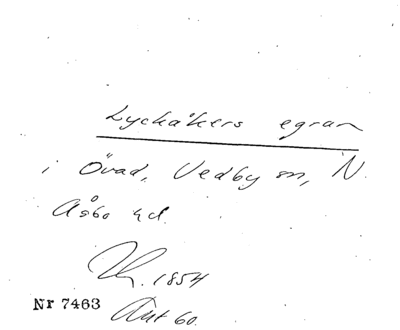 Lyckåkers egran
i Övad, Vedby sn, N.
Åsbo hd.
1854
Nr 7463
Ant 60.